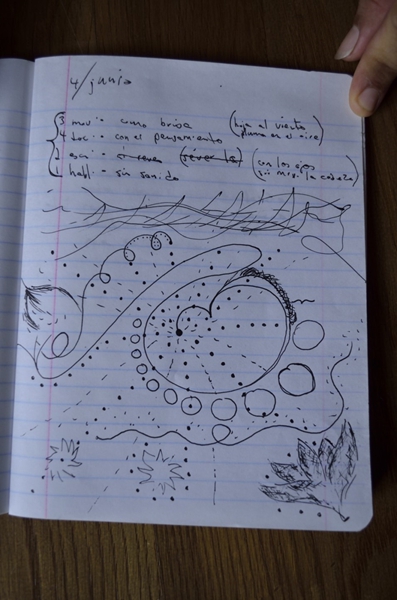 4/junio
3 mov: - como brisa (hoja al viento
4 toc: - con el pensamiento pluma en el aire)
2 esc: - (con los ojos
1 habl: - sin sonido sin mover la cabeza)